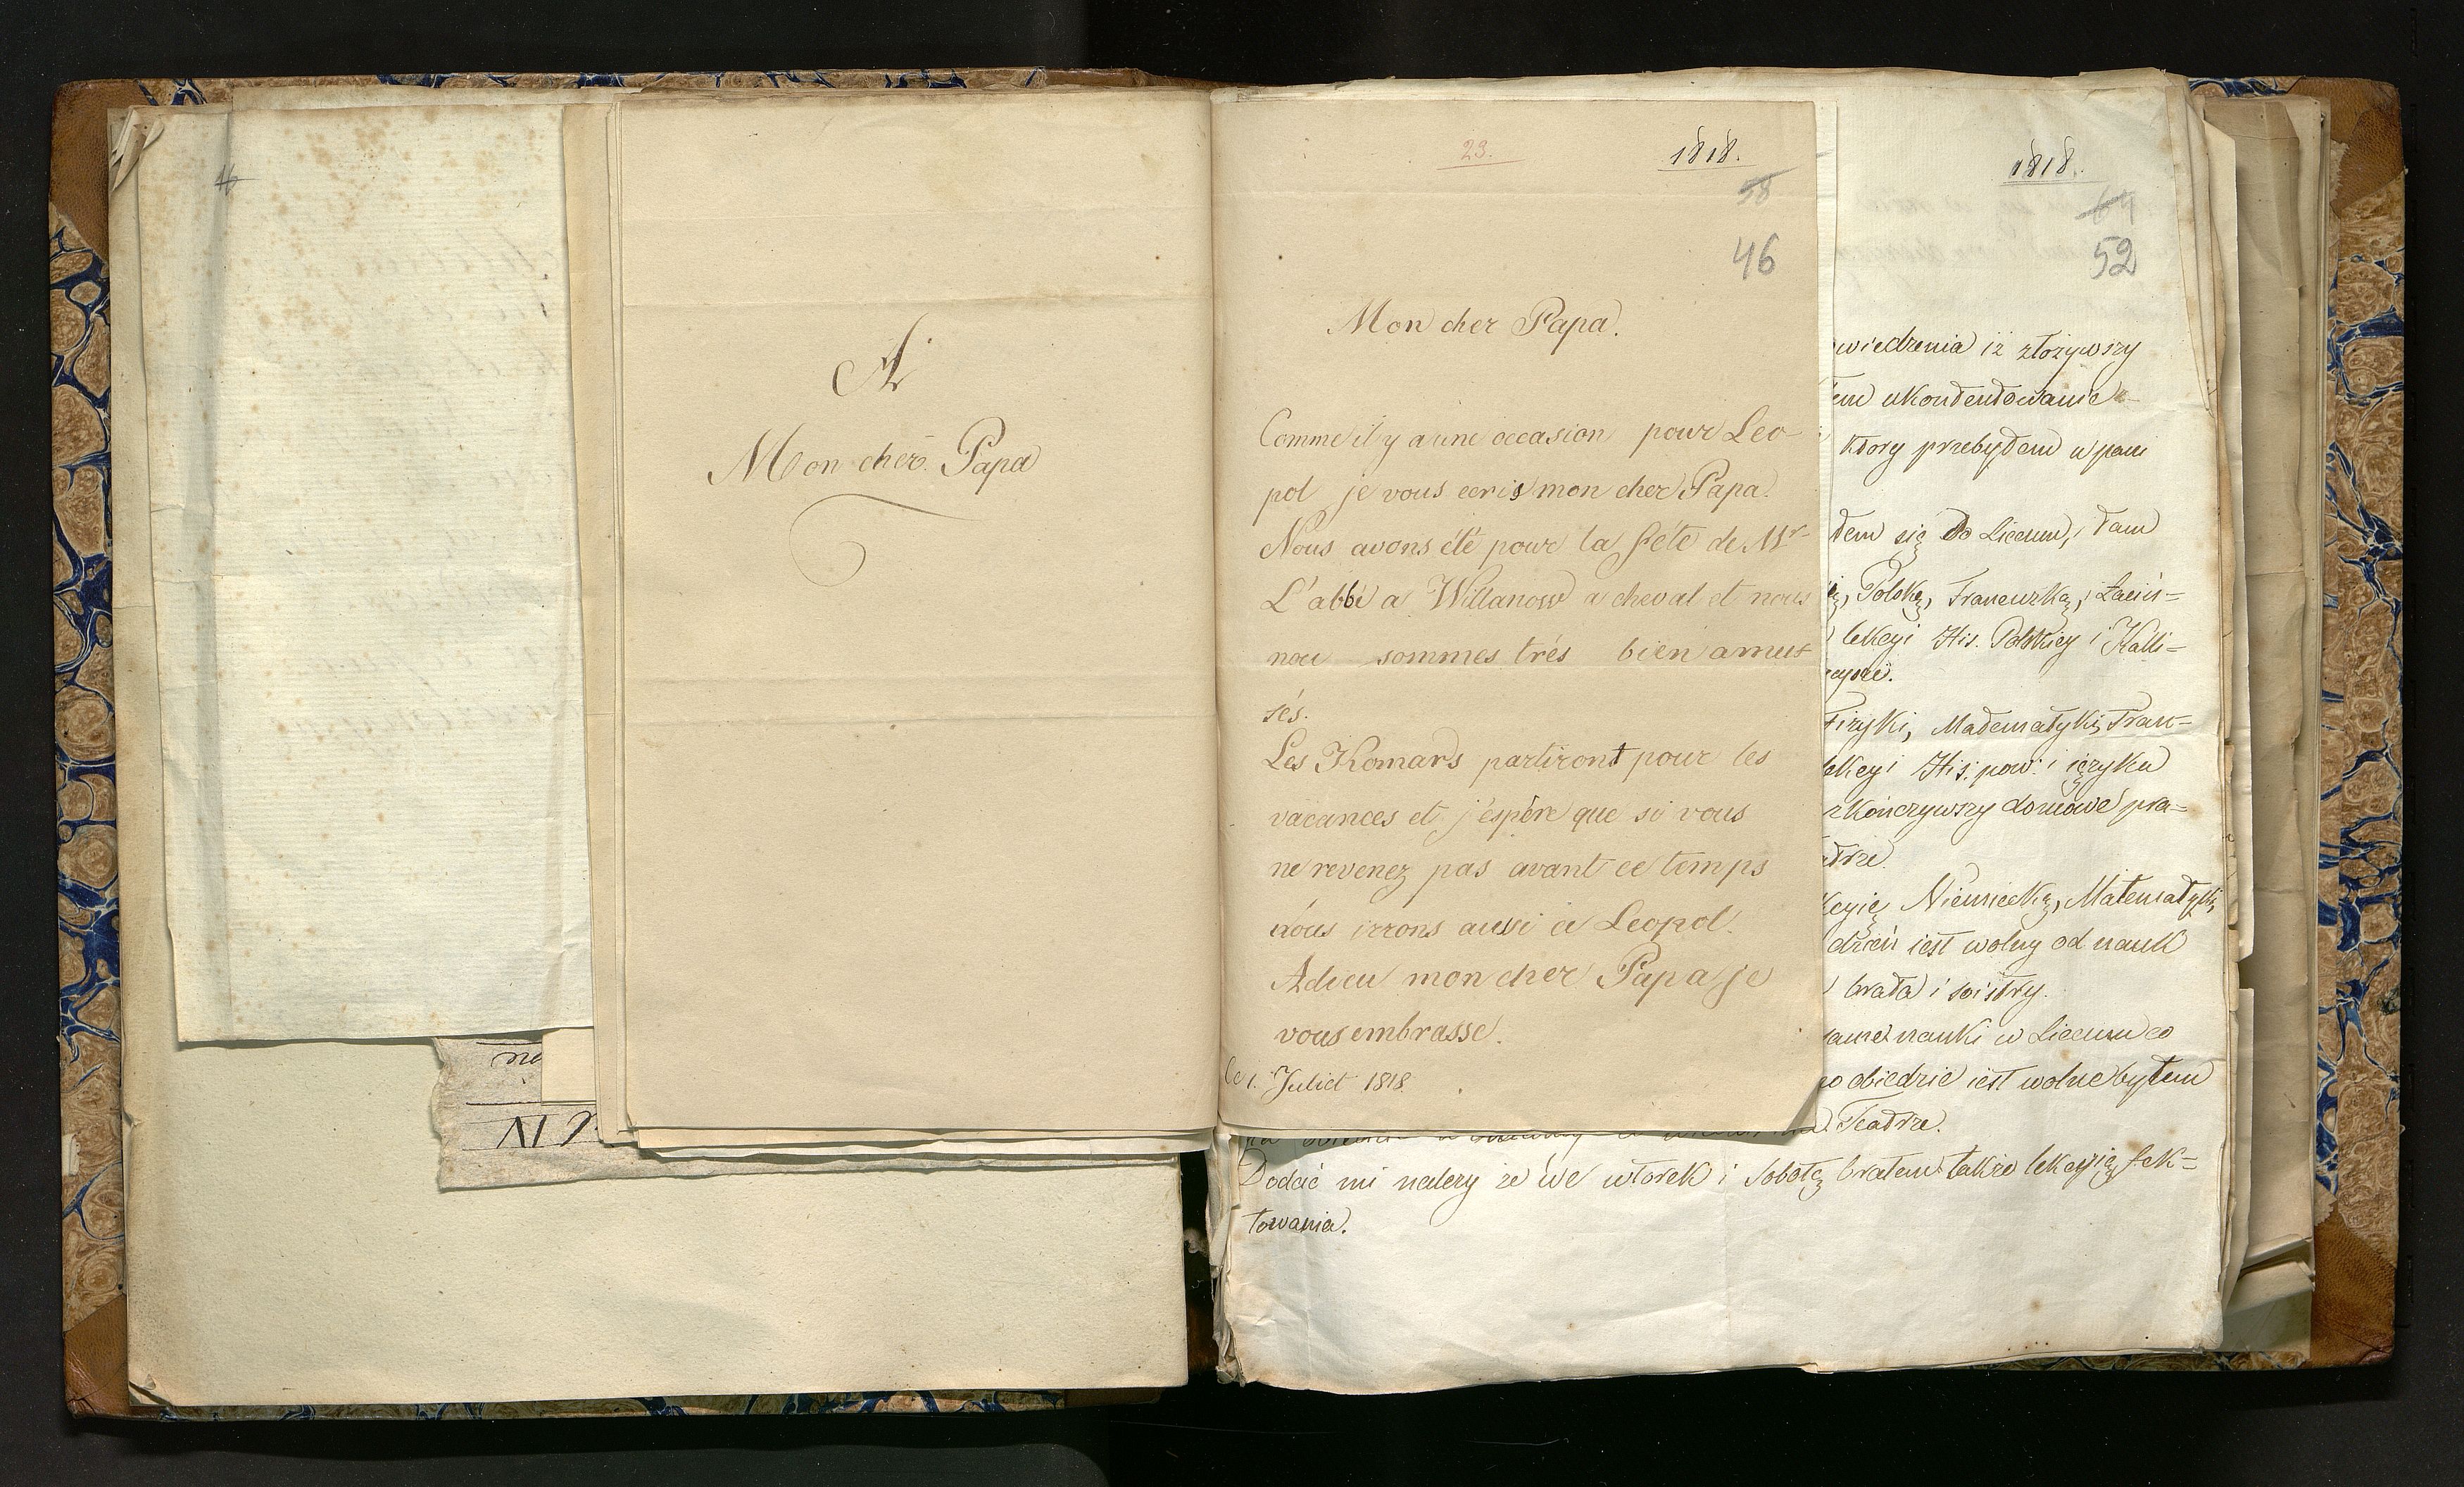 A
Mon cher Papa
23.
1818.
58
46
Mon cher Papa.
Comme il y a une occasion pour Leo-
pol je vous ecris mon cher Papa.
Nous avons été pour la féte de Mr
L'abbé a Willanow a cheval et nous
nou sommes trés bien amu-
sés.
Les Komars partiront pour les
vacances et j'espère que si vous
ne revenez pas avant ce temps
nous irrons aussi a Leopol.
Adieu mon cher Papa je
vous embrasse.
le 1. Juliet 1818
1818.
64
52
wiedzenia iż złożywszy
ukontentowanie
ktory przebyłem w pani
łem się do Liceum, i tam
Polską, Francuzką, i Łaciń=
lekcyi His. Polskiey i Kalli=
Fizyki, Matematyki, Fran=
His: pow: i ięzyku
zkończywszy domowe pra=
Niemiecką, Matematyki,
dzień iest wolny od nauk
brata i siostry.
nauki w Liceum co
obiedzie iest wolne byłem
Teatrze.
Dodać mi należy że we wtorek i Sobotę brałem także lekcyię fek=
towania.